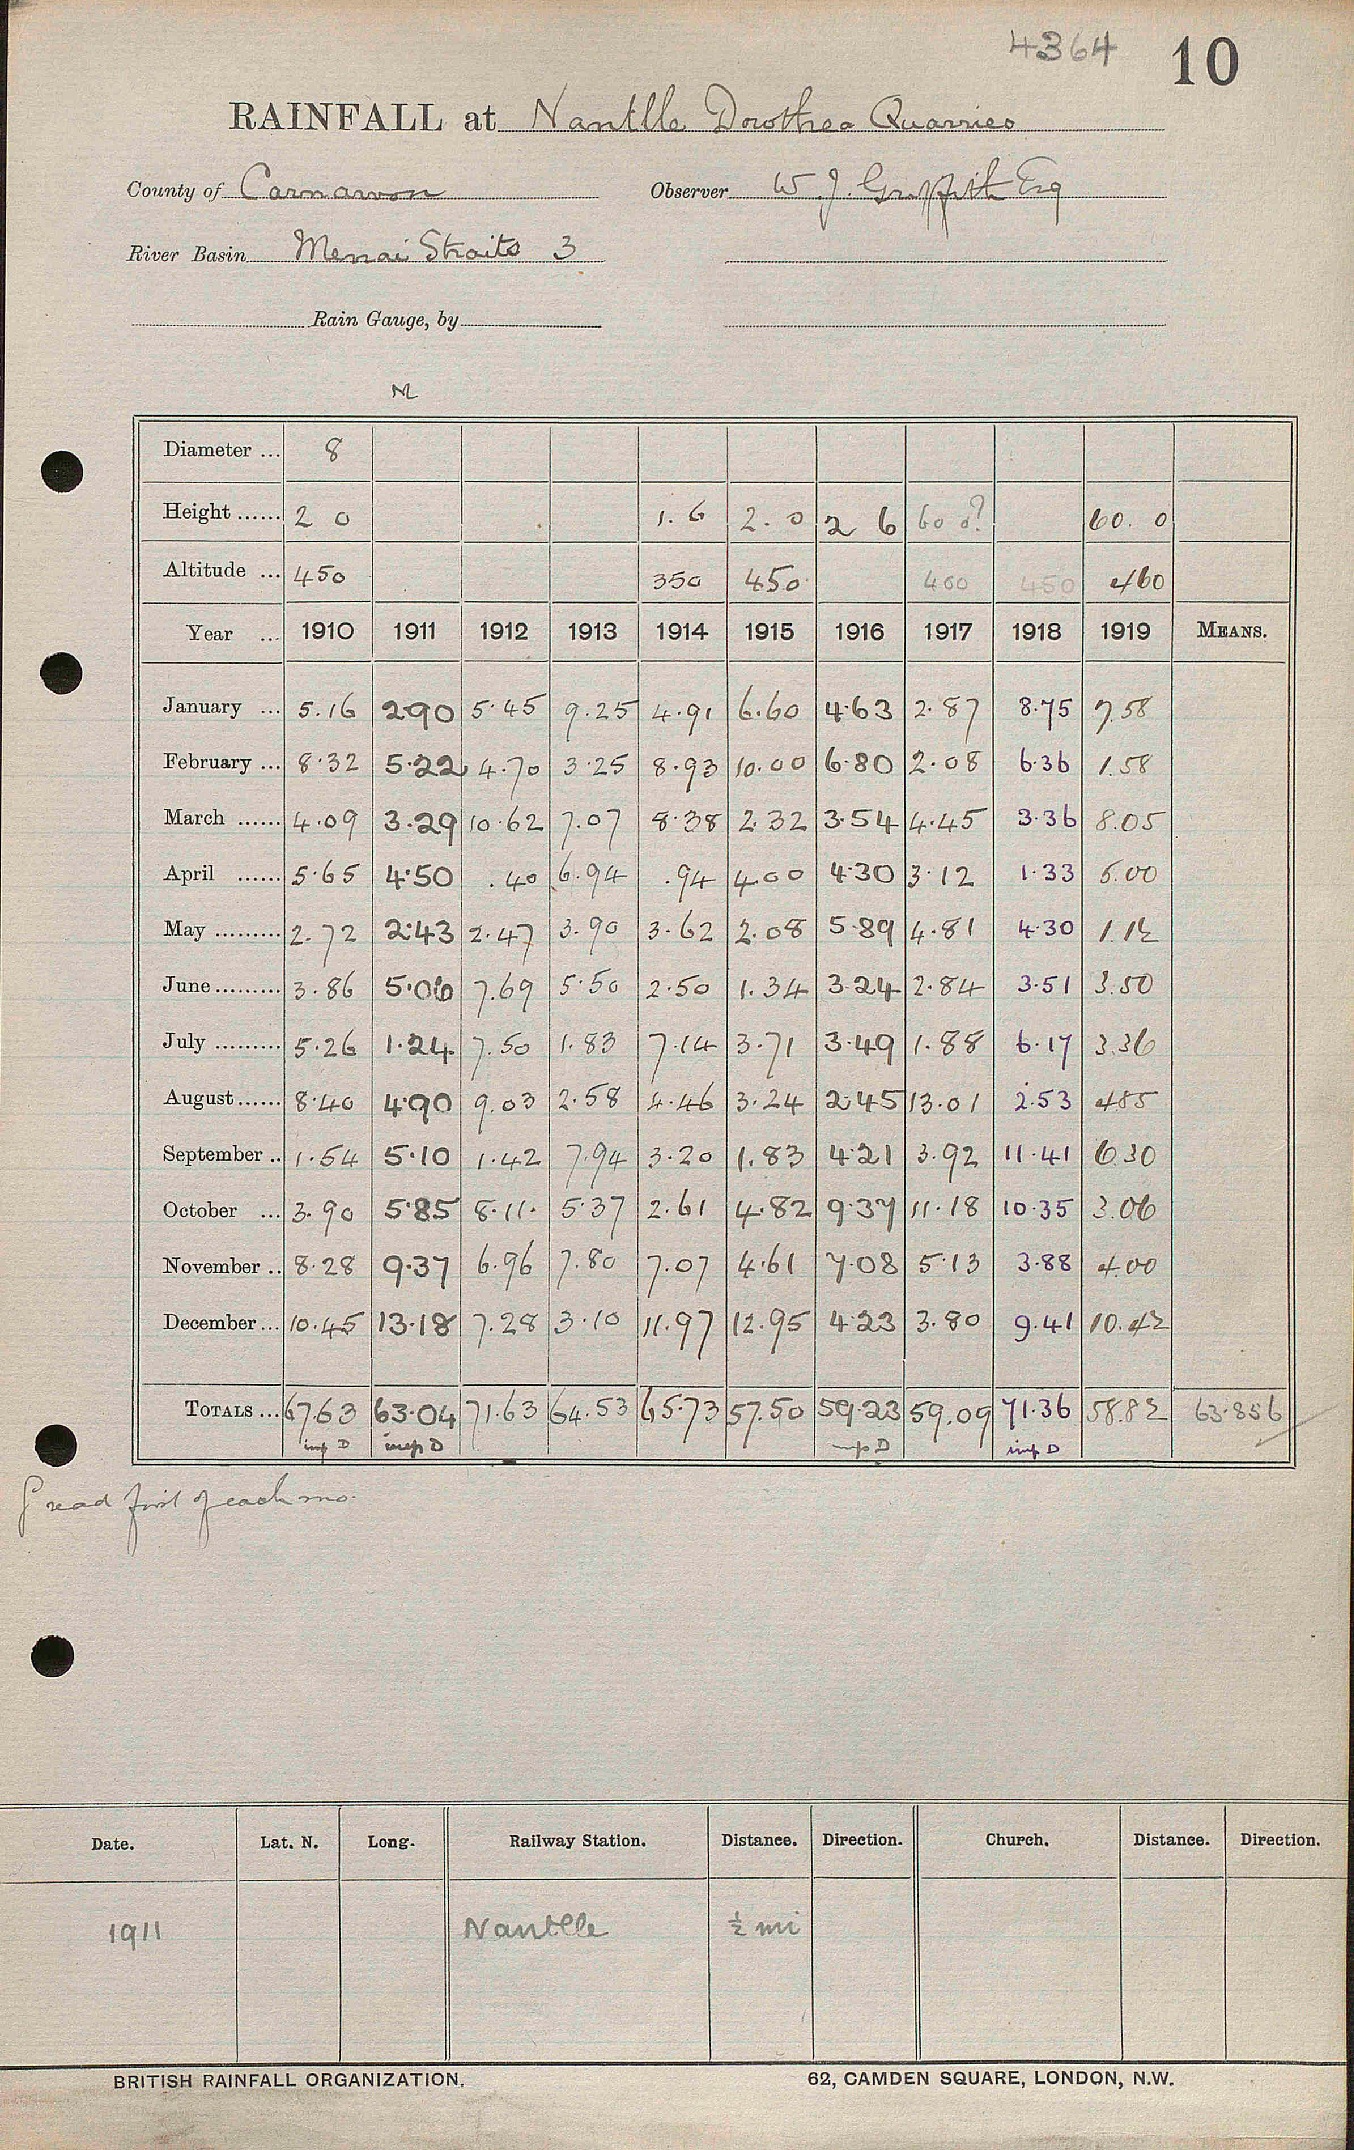 4364 10
RAINFALL at Nantlle Dorothea Quarries
County of Carnarvon Observer W. J. Griffith Esq
River Basin Menai Straits 3
Rain Gauge, by
M
Diameter ... 8
Height ...... 2 0 1. 6 2. 0 2 6 60 0? 60. 0
Altitude ... 450 350 450 400 450 460
Year ... 1910 1911 1912 1913 1914 1915 1916 1917 1918 1919 MEANS.
January ... 5.16 2.90 5.45 9.25 4.91 6.60 4.63 2.87 8.75 7.58
February ... 8.32 5.22 4.70 3.25 8.93 10.00 6.80 2.08 6.36 1.58
March ...... 4.09 3.29 10.62 7.07 8.38 2.32 3.54 4.45 3.36 8.05
April ...... 5.65 4.50 .40 6.94 .94 4.00 4.30 3.12 1.33 5.00
May ......... 2.72 2.43 2.47 3.90 3.62 2.08 5.89 4.81 4.30 1.12
June ......... 3.86 5.06 7.69 5.50 2.50 1.34 3.24 2.84 3.51 3.50
July ......... 5.26 1.24 7.50 1.83 7.14 3.71 3.49 1.88 6.17 3.36
August ...... 8.40 4.90 9.03 2.58 4.46 3.24 2.45 13.01 2.53 4.85
September .. 1.54 5.10 1.42 7.94 3.20 1.83 4.21 3.92 11.41 6.30
October ... 3.90 5.85 8.11 5.37 2.61 4.82 9.37 11.18 10.35 3.06
November .. 8.28 9.37 6.96 7.80 7.07 4.61 7.08 5.13 3.88 4.00
December ... 10.45 13.18 7.28 3.10 11.97 12.95 4.23 3.80 9.41 10.42
TOTALS ... 67.63 63.04 71.63 64.53 65.73 57.50 59.23 59.09 71.36 58.82 63.856
imp D imp D imp D imp D
G read first of each mo.
Date. Lat. N. Long. Railway Station. Distance. Direction. Church. Distance. Direction.
1911 Nantlle ½ mi
BRITISH RAINFALL ORGANIZATION. 62, CAMDEN SQUARE, LONDON, N.W.